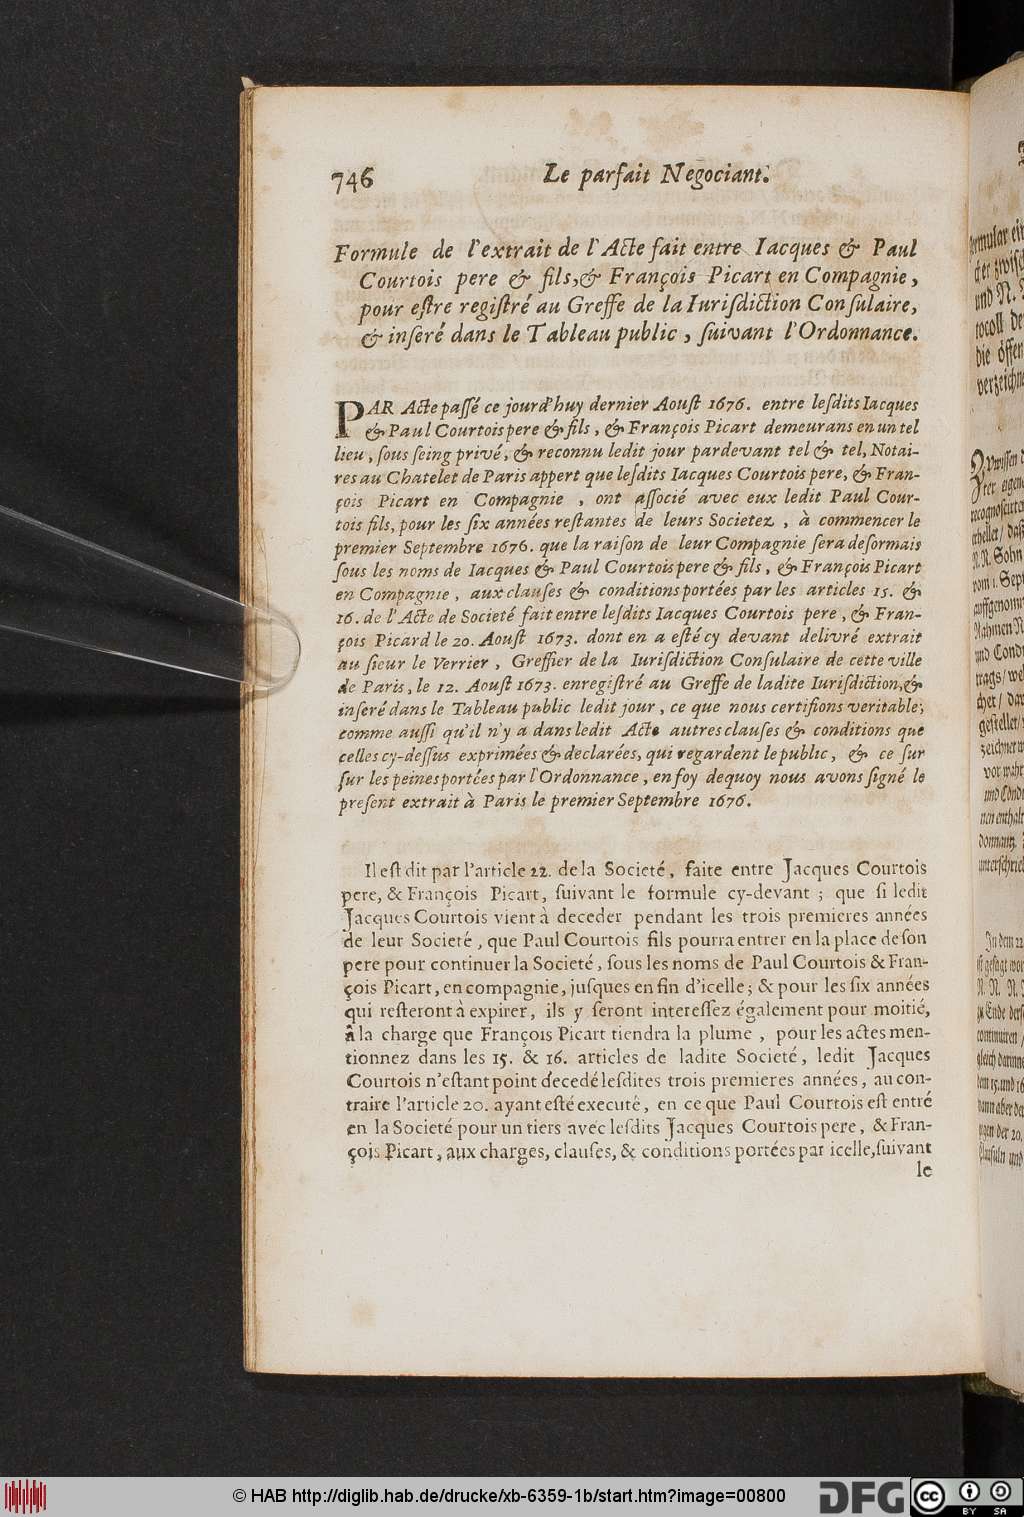 746 Le parfait Negociant.
Formule de l'extrait de l'Acte fait entre Iacques & Paul
Courtois pere & fils, & François Picart en Compagnie,
pour eſtre regiſtré au Greffe de la Iuriſdiction Conſulaire,
& inſeré dans le Tableau public, ſuivant l'Ordonnance.
PAR Acte paſſé ce jourd'huy dernier Aouſt 1676. entre leſdits Iacques
& Paul Courtois pere & fils, & François Picart demeurans en un tel
lieu, ſous ſeing privé, & reconnu ledit jour pardevant tel & tel, Notai-
res au Chatelet de Paris appert que leſdits Iacques Courtois pere, & Fran-
çois Picart en Compagnie, ont aſſocié avec eux ledit Paul Cour-
tois fils, pour les ſix années reſtantes de leurs Societez, à commencer le
premier Septembre 1676. que la raiſon de leur Compagnie ſera deſormais
ſous les noms de Iacques & Paul Courtois pere & fils, & François Picart
en Compagnie, aux clauſes & conditions portées par les articles 15. &
16. de l'Acte de Societé fait entre leſdits Iacques Courtois pere, & Fran-
çois Picard le 20. Aouſt 1673. dont en a eſté cy devant delivré extrait
au ſieur le Verrier, Greffier de la Iuriſdiction Conſulaire de cette ville
de Paris, le 12. Aouſt 1673. enregiſtré au Greffe de ladite Iuriſdiction, &
inſeré dans le Tableau public ledit jour, ce que nous certifions veritable;
comme auſſi qu'il n'y a dans ledit Acte autres clauſes & conditions que
celles cy-deſſus exprimées & declarées, qui regardent le public, & ce ſur
ſur les peines portées par l'Ordonnance, en foy dequoy nous avons ſigné le
preſent extrait à Paris le premier Septembre 1676.
Il eſt dit par l'article 22. de la Societé, faite entre Jacques Courtois
pere, & François Picart, ſuivant le formule cy-devant; que ſi ledit
Jacques Courtois vient à deceder pendant les trois premieres années
de leur Societé, que Paul Courtois fils pourra entrer en la place de ſon
pere pour continuer la Societé, ſous les noms de Paul Courtois & Fran-
çois Picart, en compagnie, juſques en fin d'icelle; & pour les ſix années
qui reſteront à expirer, ils y ſeront intereſſez également pour moitié,
â la charge que François Picart tiendra la plume, pour les actes men-
tionnez dans les 15. & 16. articles de ladite Societé, ledit Jacques
Courtois n'eſtant point decedé leſdites trois premieres années, au con-
traire l'article 20. ayant eſté executê, en ce que Paul Courtois eſt entré
en la Societé pour un tiers avec leſdits Jacques Courtois pere, & Fran-
çois Picart, aux charges, clauſes, & conditions portées par icelle, ſuivant
le
© HAB http://diglib.hab.de/drucke/xb-6359-1b/start.htm?image=00800
DFG
cc BY SA